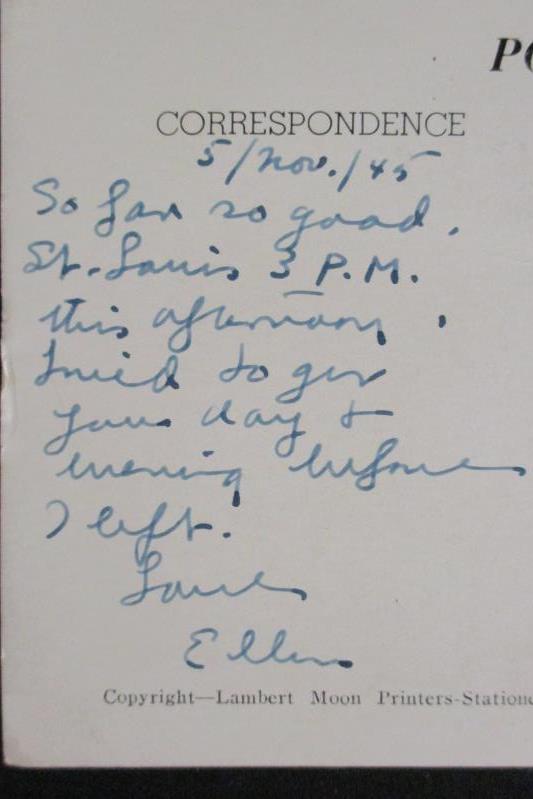 PO
CORRESPONDENCE
5/Nov./45
So far so good.
St. Louis 3 P.M.
this afternoon.
Tried to get
you day &
evening before
I left.
Love
Ellen
Copyright—Lambert Moon Printers-Statione